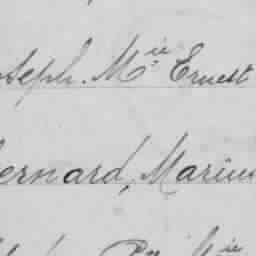 oseph. M.ie Ernest
ernard, Marius